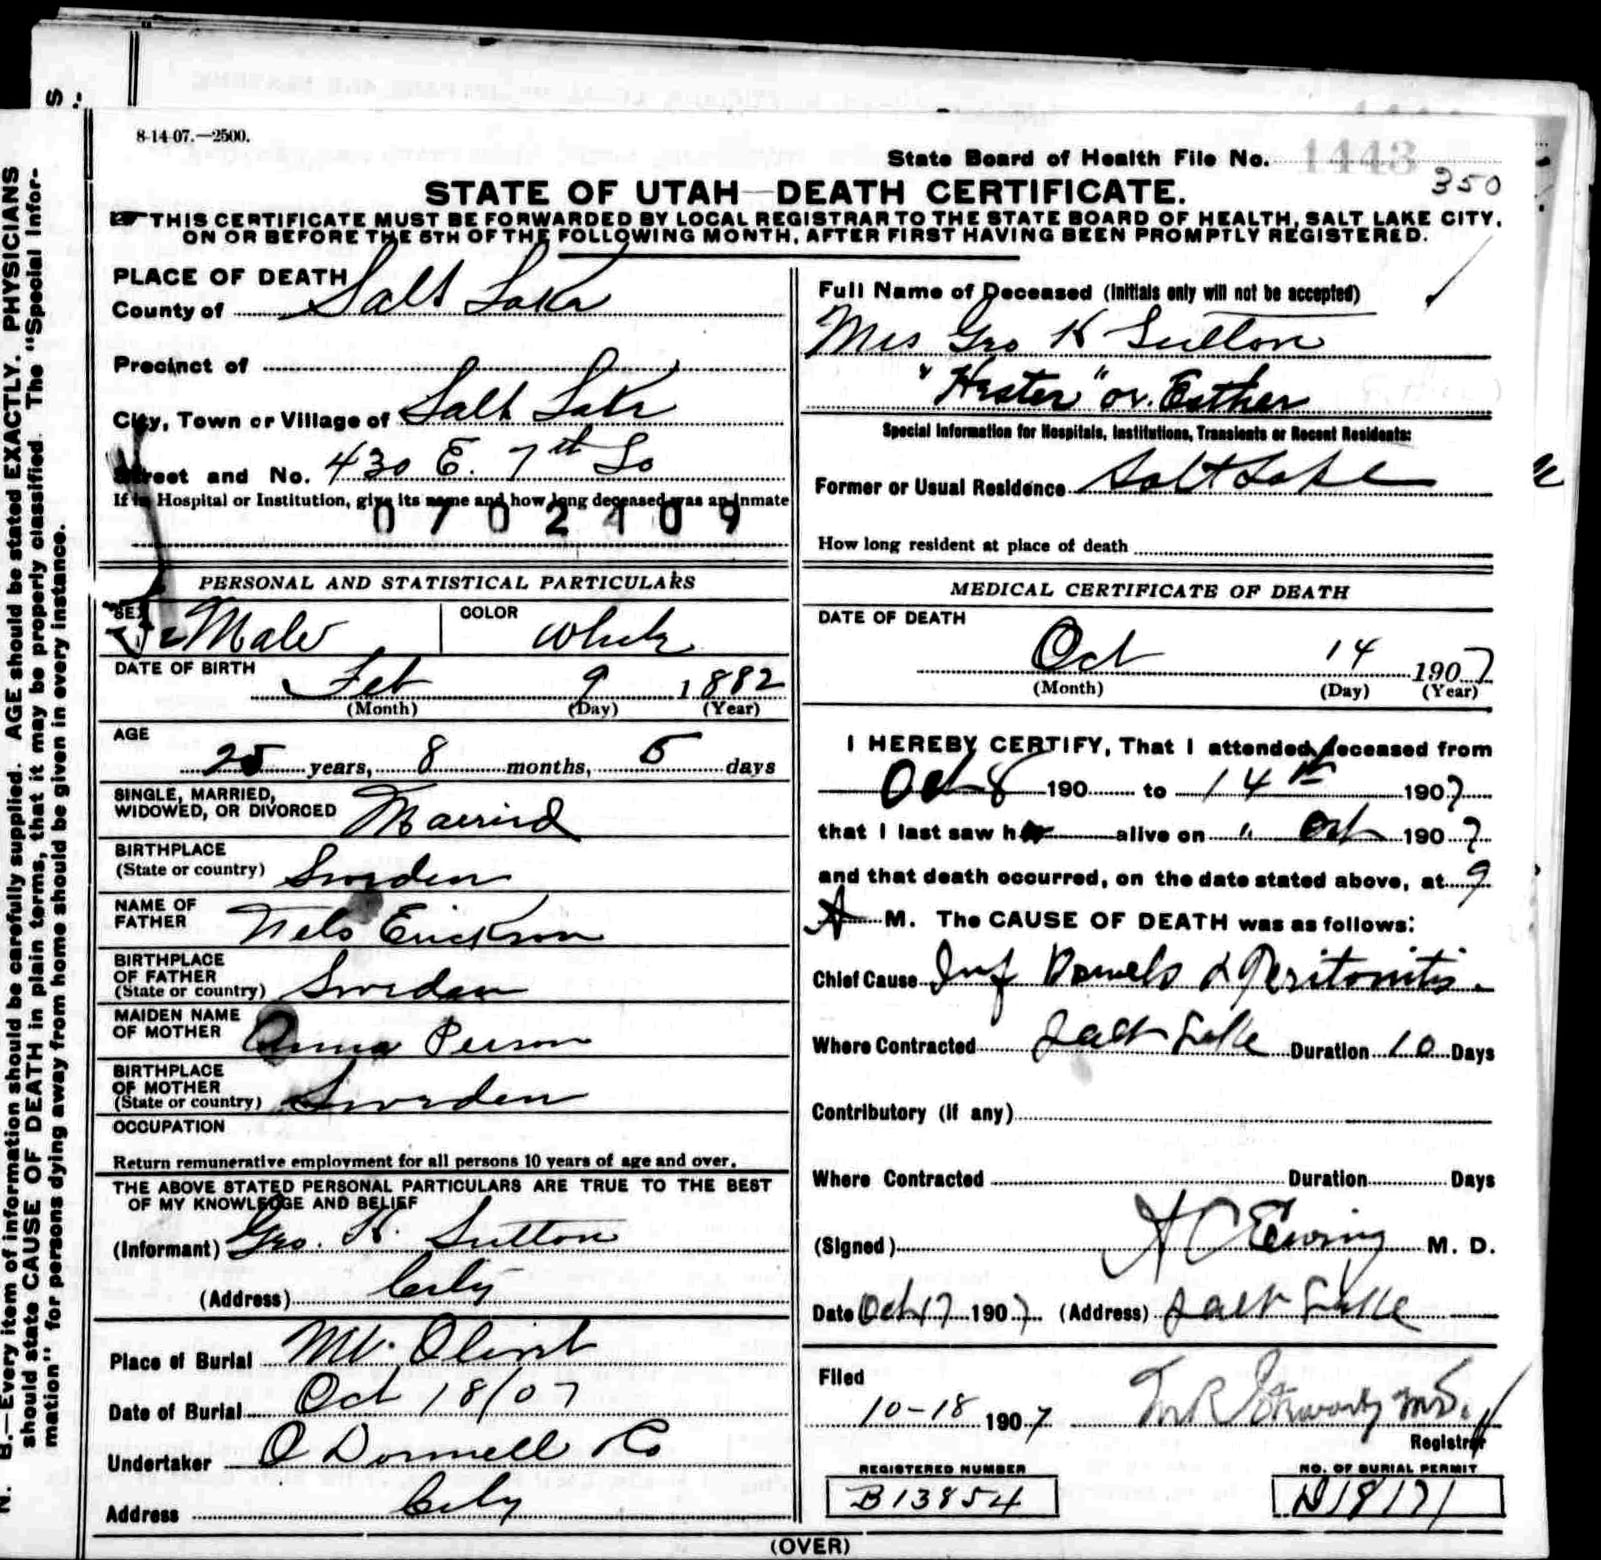 8-14-07.—2500.
State Board of Health File No. 1443
350
STATE OF UTAH—DEATH CERTIFICATE.
THIS CERTIFICATE MUST BE FORWARDED BY LOCAL REGISTRAR TO THE STATE BOARD OF HEALTH, SALT LAKE CITY,
ON OR BEFORE THE 5TH OF THE FOLLOWING MONTH, AFTER FIRST HAVING BEEN PROMPTLY REGISTERED.
PLACE OF DEATH
County of Salt Lake
Precinct of
City, Town or Village of Salt Lake
Street and No. 430 E. 7th So
If in Hospital or Institution, give its name and how long deceased was an inmate
0702109
PERSONAL AND STATISTICAL PARTICULARS
SEX Fe Male COLOR White
DATE OF BIRTH Feb 9 1882
(Month) (Day) (Year)
AGE
25 years, 8 months, 5 days
SINGLE, MARRIED,
WIDOWED, OR DIVORCED Married
BIRTHPLACE
(State or country) Sweden
NAME OF
FATHER Nels Erickson
BIRTHPLACE
OF FATHER
(State or country) Sweden
MAIDEN NAME
OF MOTHER Anna Person
BIRTHPLACE
OF MOTHER
(State or country) Sweden
OCCUPATION
Return remunerative employment for all persons 10 years of age and over.
THE ABOVE STATED PERSONAL PARTICULARS ARE TRUE TO THE BEST
OF MY KNOWLEDGE AND BELIEF
(Informant) Geo. K. Sutton
(Address) City
Place of Burial Mt. Olivet
Date of Burial Oct 18/07
Undertaker O Donnell Co
Address City
Full Name of Deceased (Initials only will not be accepted)
Mrs Geo K Sutton
"Hester" or. Esther
Special Information for Hospitals, Institutions, Transients or Recent Residents:
Former or Usual Residence Salt Lake
How long resident at place of death
MEDICAL CERTIFICATE OF DEATH
DATE OF DEATH
Oct 14 1907
(Month) (Day) (Year)
I HEREBY CERTIFY, That I attended deceased from
Oct 8 190 to 14th 1907
that I last saw her alive on " Oct 1907
and that death occurred, on the date stated above, at 9
A M. The CAUSE OF DEATH was as follows:
Chief Cause Inf Bowels & Peritonitis.
Where Contracted Salt Lake Duration 10 Days
Contributory (if any)
Where Contracted Duration Days
(Signed) A C Ewing M. D.
Date Oct 17 1907 (Address) Salt Lake
Filed
10-18 1907 M.D.
Registrar
REGISTERED NUMBER
B13854
NO. OF BURIAL PERMIT
D18171
(OVER)
N. B.—Every item of information should be carefully supplied. AGE should be stated EXACTLY. PHYSICIANS
should state CAUSE OF DEATH in plain terms, that it may be properly classified. The "Special Infor-
mation" for persons dying away from home should be given in every instance.